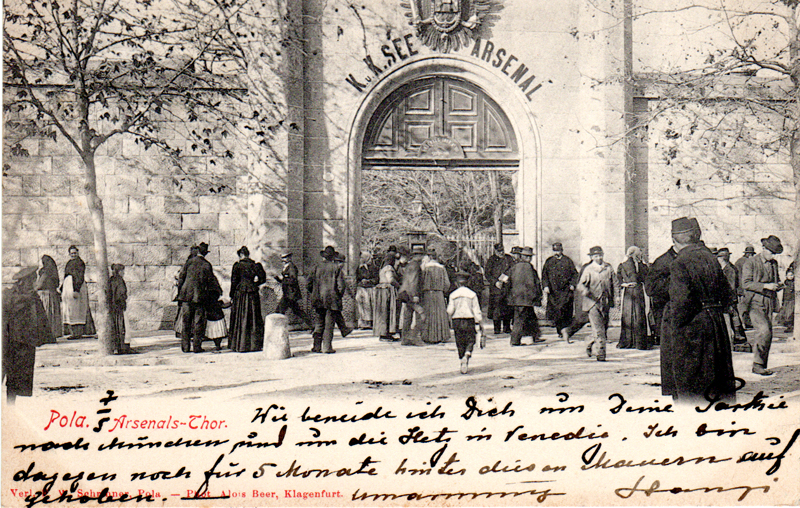 K. u. K. SEE ARSENAL
Pola. Arsenals-Thor.
7/5
Wie beneide ich Dich um Deine Partie
nach München und um die Hetz in Venedig. Ich bin
dagegen noch für 5 Monate hinter diesen Mauern auf
gehoben. Umarmung Hansi
Verl. Schrinner, Pola. — Phot. Alois Beer, Klagenfurt.